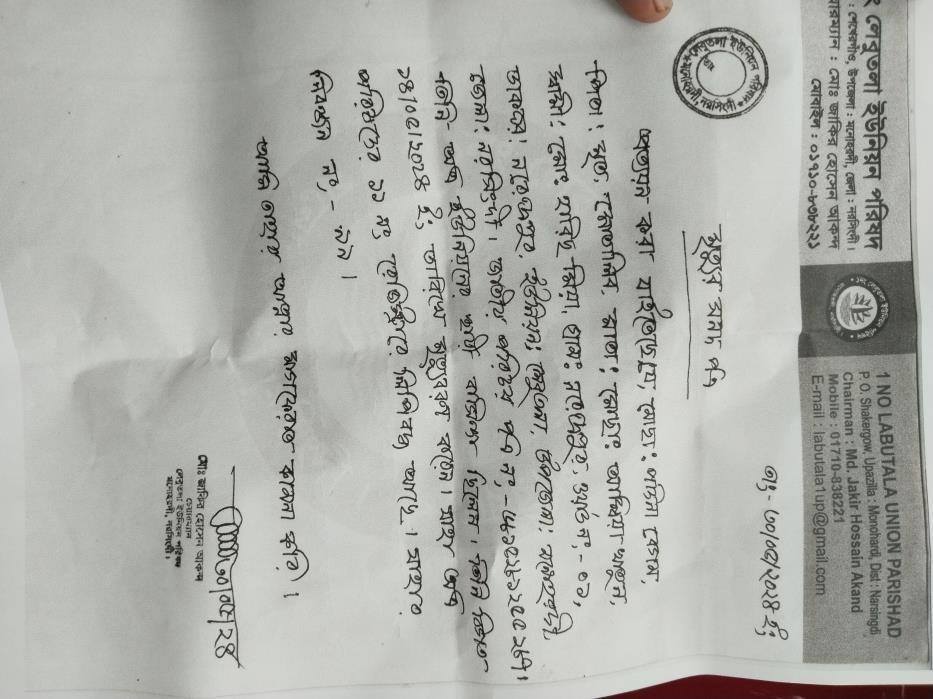 নং লেবুতলা ইউনিয়ন পরিষদ
: শেখেরগাঁও, উপজেলা : মনোহরদী, জেলা : নরসিংদী।
চেয়ারম্যান : মোঃ জাকির হোসেন আকন্দ
মোবাইল : ০১৭১০-৮৩৮২২১
1 NO LABUTALA UNION PARISHAD
P.O. Shakergow, Upazilla : Monohardi, Dist : Narsingdi
Chairman : Md. Jakir Hossain Akand
Mobile : 01710-838221
E-mail : labutala1up@gmail.com
তাং- ৩০/০৫/২০২৪ ইং
মৃত্যুর সনদ পত্র
প্রত্যয়ন করা যাইতেছে যে, মোছাঃ
পিতা: মৃত. মাতা: মোছাঃ আম্বিয়া খাতুন,
স্বামী: মোঃ মিয়া, গ্রাম: ওয়ার্ড নং- ০১,
ডাকঘর: ইউনিয়ন: লেবুতলা, উপজেলা: মনোহরদী,
জেলা: নরসিংদী। জাতীয় পরিচয় পত্র নং-
তিনি অত্র ইউনিয়নের স্থায়ী বাসিন্দা ছিলেন। তিনি বিগত
১৪/০৫/২০২৪ ইং তারিখে মৃত্যুবরণ করেন। যাহা অত্র
পরিষদের ১১ নং রেজিস্টারে লিপিবদ্ধ আছে। যাহার
নিবন্ধন নং- নাই।
আমি তাহার আত্মার মাগফেরাত কামনা করি।
৩০/০৫/২৪
মোঃ জাকির হোসেন আকন্দ
চেয়ারম্যান
লেবুতলা ইউনিয়ন পরিষদ
মনোহরদী, নরসিংদী।
লেবুতলা ইউনিয়ন পরিষদ
মনোহরদী, নরসিংদী